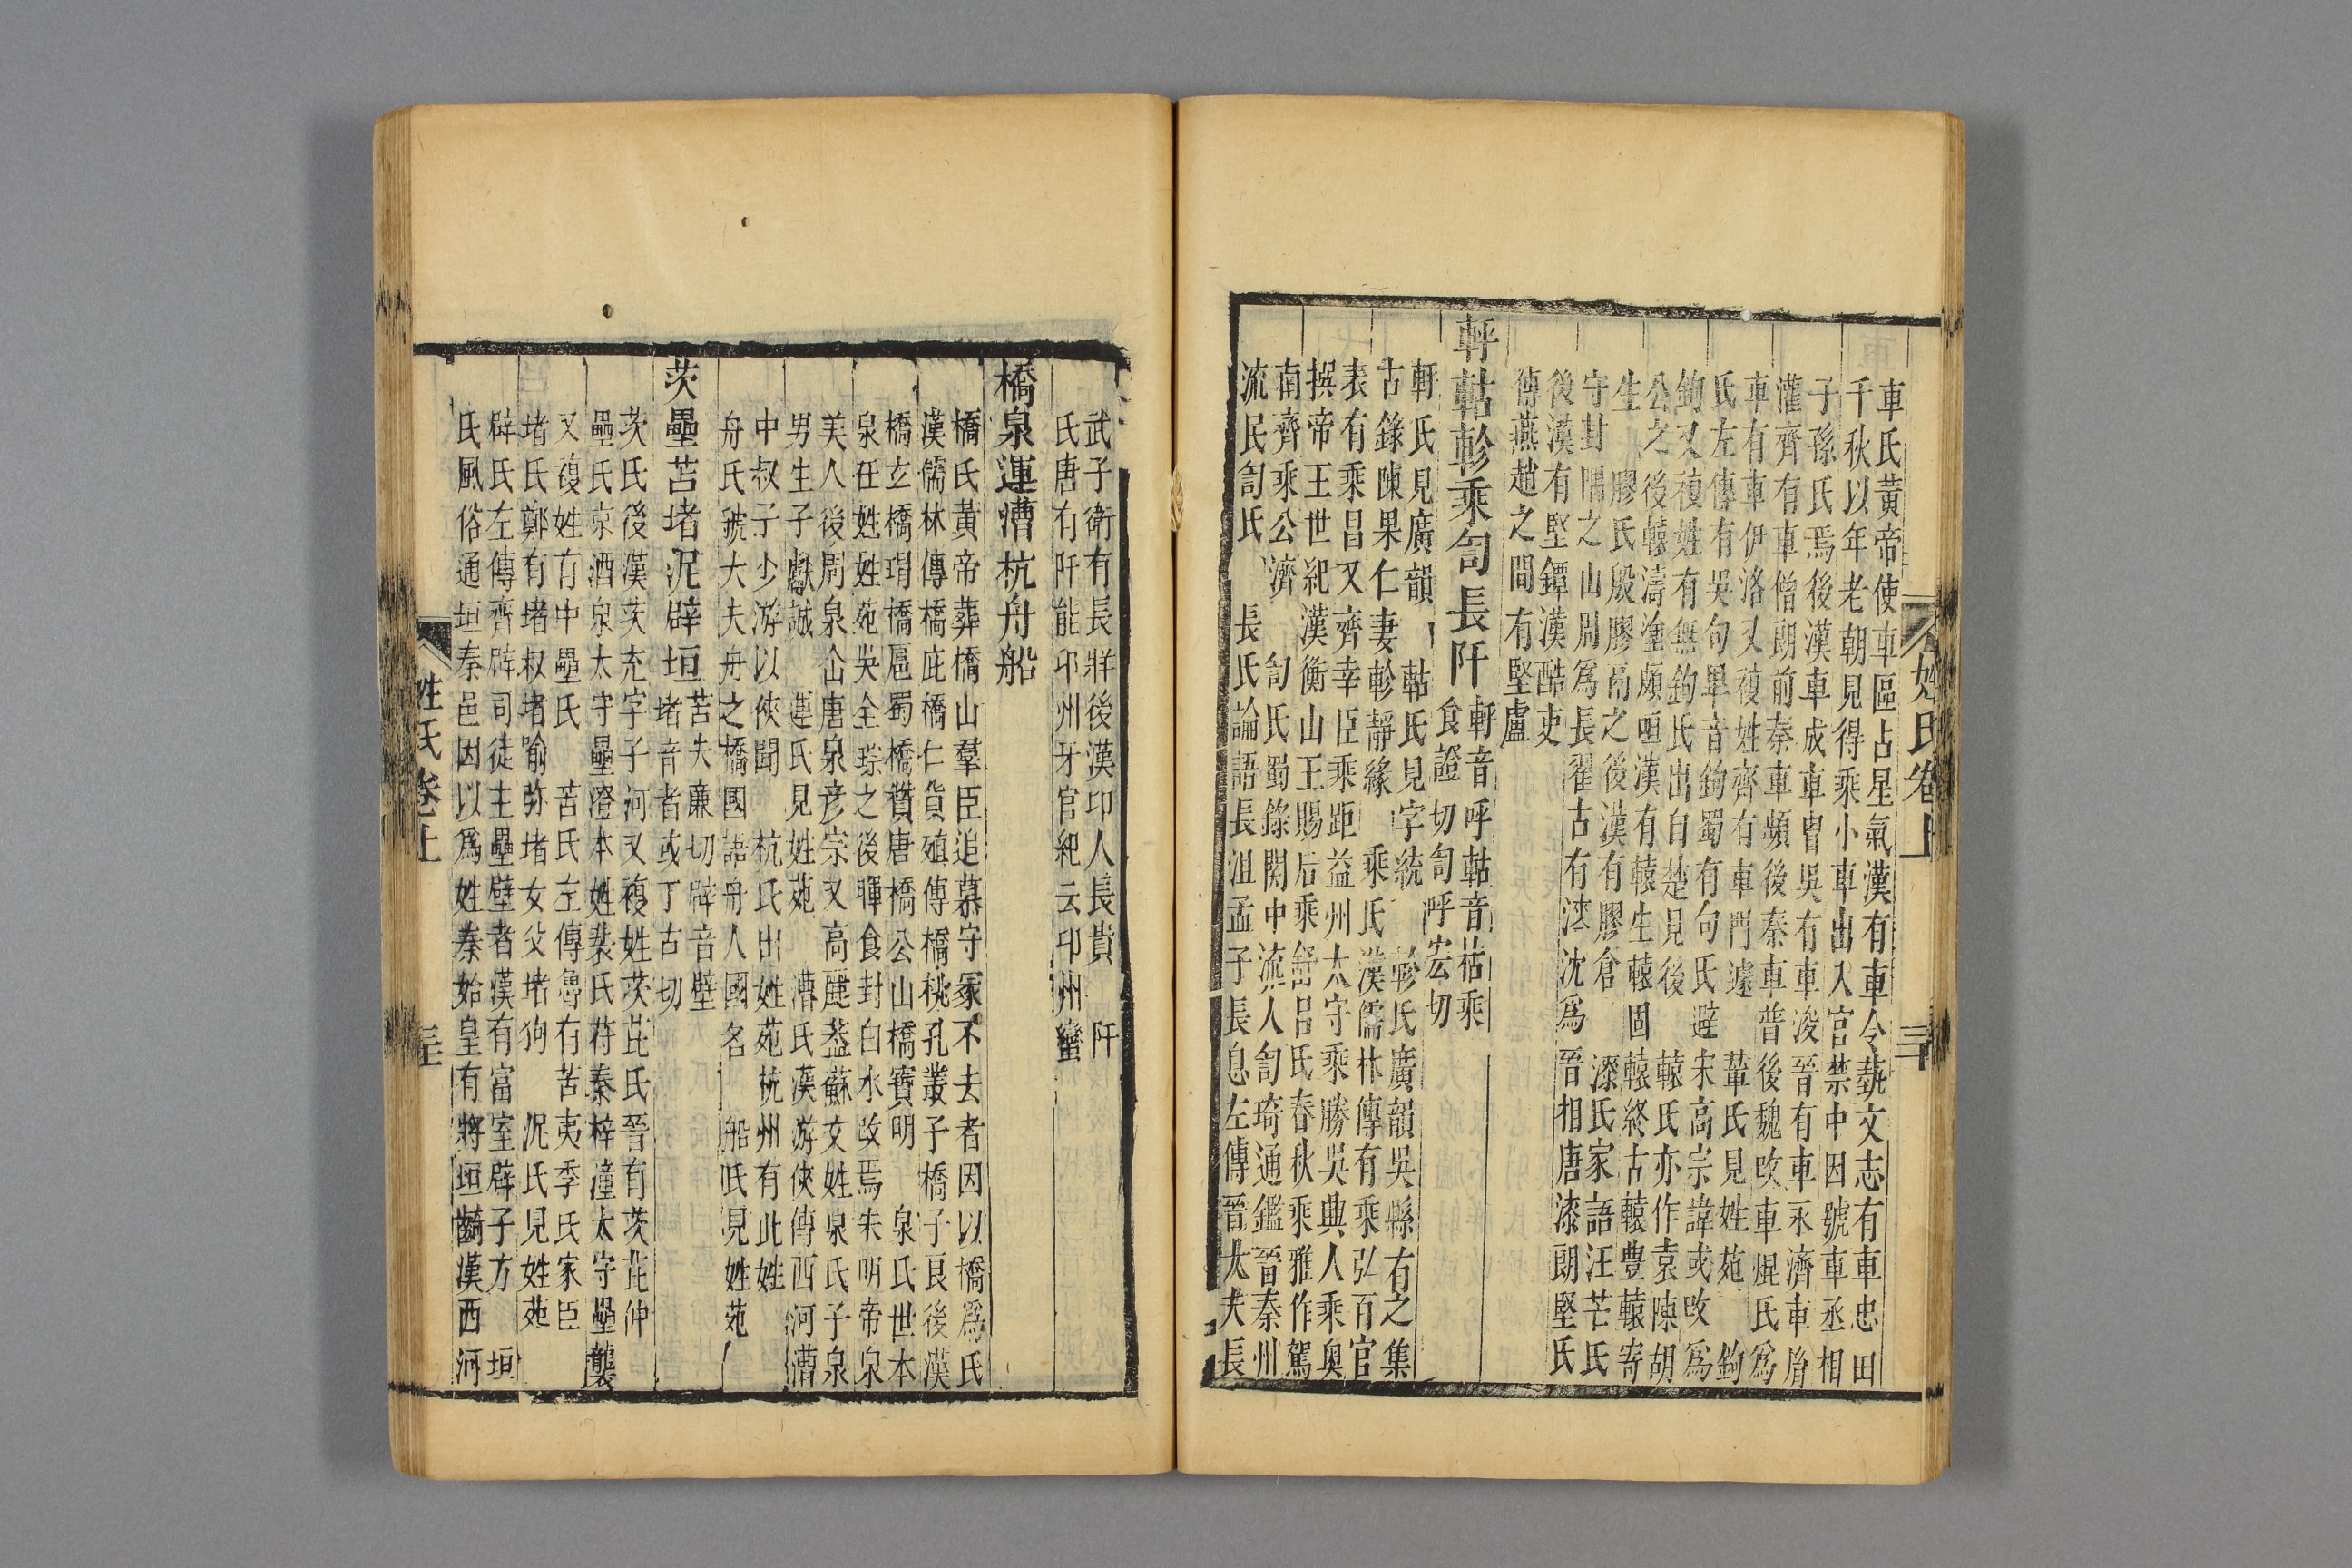 車氏黃帝使車區占星氣漢有車令藝文志有車忠田
千秋以年老朝見得乘小車出入官禁中因號車丞相
子孫氏焉後漢車成車冑吳有車浚晉有車永濟車胤
灌齊有車僧朗前秦車頻後秦車普後魏改車焜氏爲
車有車伊洛又複姓齊有車門遽 輂氏見姓苑 鉤
氏左傳有吳句畢音鉤蜀有句氏避宋高宗諱或改爲
鉤又複姓有無鉤氏出自楚見後 轅氏亦作袁陳胡
公之後轅濤塗頗咺漢有轅生轅固轅終古轅豊轅寄
生 膠氏殷膠鬲之後漢有膠倉 漆氏家語汪芒氏
守封隅之山周爲長翟古有漆沈爲晉相唐漆朗堅氏
後漢有堅鐔漢酷吏
傳燕趙之間有堅盧
軒軲軫乘訇長阡
軒音呼軲音祜乘
食證切訇呼宏切
軒氏見廣韻 軲氏見字統 軫氏廣韻吳縣有之集
古錄陳果仁妻軫靜緣 乘氏漢儒林傳有乘弘百官
表有乘昌又齊幸臣乘距益州太守乘勝吳典人乘奧
撰帝王世紀漢衡山王賜后乘舒呂氏春秋乘雅作駕
南齊乘公濟 訇氏蜀錄関中流人訇琦通鑑晉秦州
流民訇氏 長氏論語長沮孟子長息左傳晉大夫長
姓氏卷上
三
武子衛有長牂後漢印人長貴 阡
氏唐有阡能邛州牙官紀云邛州蠻
橋泉運漕杭舟船
橋氏黃帝葬橋山羣臣追慕守冢不去者因以橋爲氏
漢儒林傳橋庇橋仁貨殖傳橋桃孔叢子橋子良後漢
橋玄橋瑁橋扈蜀橋贊唐橋公山橋寶明 泉氏世本
泉任姓姓苑吳全琮之後暉食封白水改焉朱明帝泉
美人後周泉仚唐泉彦宗又高麗葢蘇文姓泉氏子泉
男生子獻誠 運氏見姓苑 漕氏漢游俠傳西河漕
中叔子少游以俠聞 杭氏出姓苑杭州有此姓
舟氏虢大夫舟之橋國語舟人國名 船氏見姓苑
茨壘苫堵泥辟垣
苫失廉切辟音壁
堵音者或丁古切
茨氏後漢茨充字子河又複姓茨芘氏晉有茨芘仲
壘氏京酒泉太守壘澄本姓裴氏苻秦梓潼太守壘襲
又複姓有中壘氏 苫氏左傳魯有苫夷季氏家臣
堵氏鄭有堵叔堵喻弥堵女父堵狗 泥氏見姓苑
辟氏左傳齊辟司徒主壘壁者漢有富室辟子方 垣
氏風俗通垣秦邑因以爲姓秦始皇有將垣齮漢西河
姓氏卷上